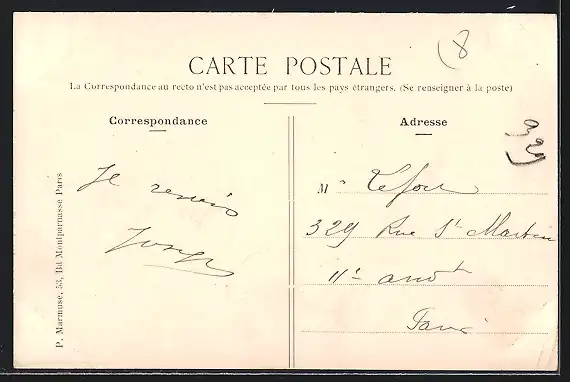 8
CARTE POSTALE
La Correspondance au recto n'est pas acceptée par tous les pays étrangers. (Se renseigner à la poste)
Correspondance
Je reviens
P. Marmuse, 53, Bd Montparnasse Paris
Adresse
M
329 Rue St Martin
11e arrdt
Paris